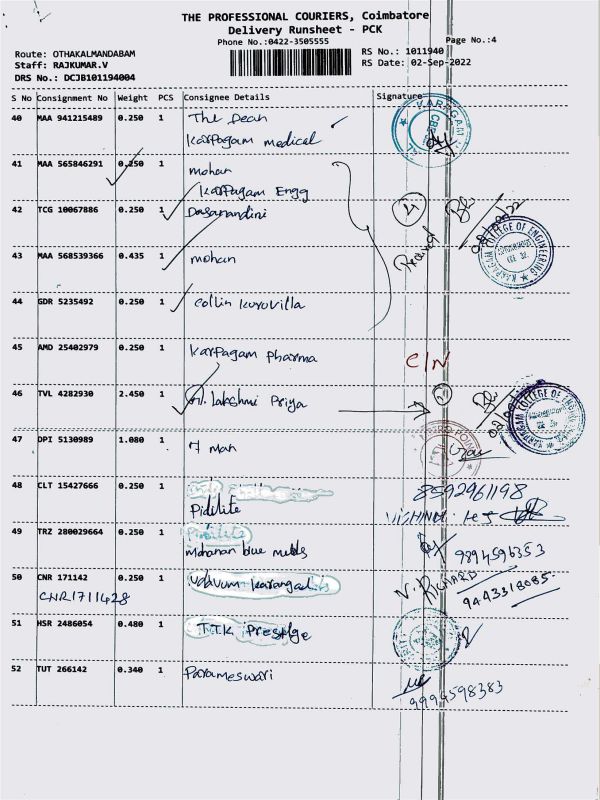 THE PROFESSIONAL COURIERS, Coimbatore
Delivery Runsheet - PCK
Phone No.:0422-3505555
Page No.:4
Route: OTHAKALMANDABAM
Staff: RAJKUMAR.V
DRS No.: DCJB101194004
RS No.: 1011940
RS Date: 02-Sep-2022
S No Consignment No Weight PCS Consignee Details Signature
40 MAA 941215489 0.250 1 The Dean
Karpagam medical
41 MAA 565846291 0.250 1 mohan
Karpagam Engg
42 TCG 10067886 0.250 1 Dasanandini
4
Received
KARPAGAM COLLEGE OF ENGINEERING
43 MAA 568539366 0.435 1 mohan
44 GDR 5235492 0.250 1 Collin Kuruvilla
45 AMD 25402979 0.250 1 Karpagam pharma
C/N
46 TVL 4282930 2.450 1 Lakshmi Priya
KARPAGAM COLLEGE OF ENGINEERING
47 DPI 5130989 1.080 1 7 mah
48 CLT 15427666 0.250 1
Pidilite
8592961198
49 TRZ 280029664 0.250 1 Pidilite
Mohanan blue metals
9894596353
50 CNR 171142 0.250 1 Udavum Karangal
CNR1711428
V. RICHARD
9443318085
51 HSR 2486054 0.480 1 T.T.K Prestige
52 TUT 266142 0.340 1 Parameswari
9994598383